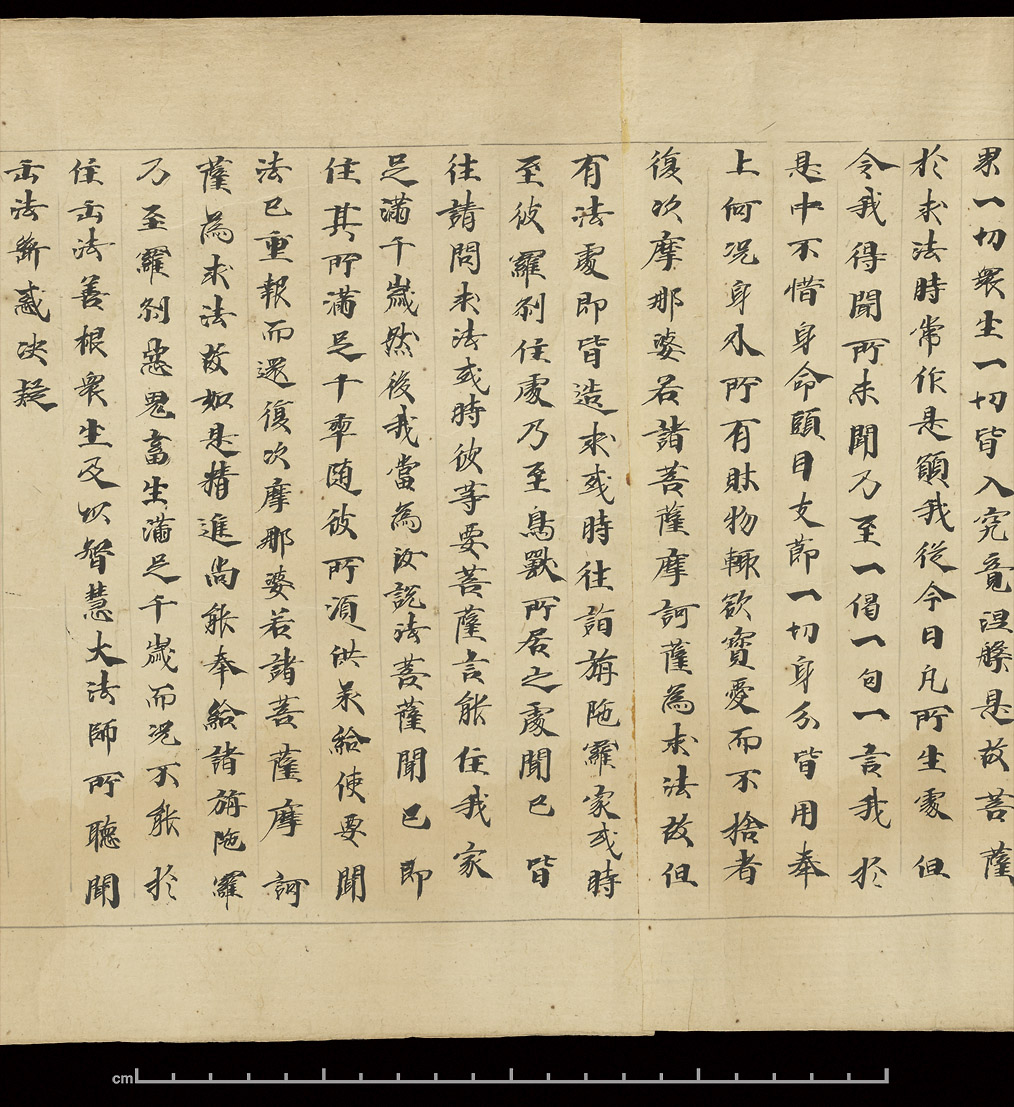 界一切衆生一切皆入究竟涅槃是故菩薩
於求法時常作是願我從今日凡所生處但
令我得聞所未聞乃至一偈一句一言我於
是中不惜身命頭目支節一切身分皆用奉
上何況身外所有財物輙欲寶愛而不捨者
復次摩那婆若諸菩薩摩訶薩為求法故但
有法處即皆造求或時往詣旃陁羅家或時
至彼羅刹住處乃至鳥獸所居之處聞已皆
往請問求法或時彼等要菩薩言能住我家
足滿千歲然後我當為汝說法菩薩聞已即
住其所滿足千年随彼所須供承給使要聞
法已重報而還復次摩那婆若諸菩薩摩訶
薩為求法故如是精進尚能奉給諸旃陁羅
乃至羅刹惡鬼畜生滿足千歲而況不能於
住正法善根衆生及以智慧大法師所聽聞
正法斷惑決疑